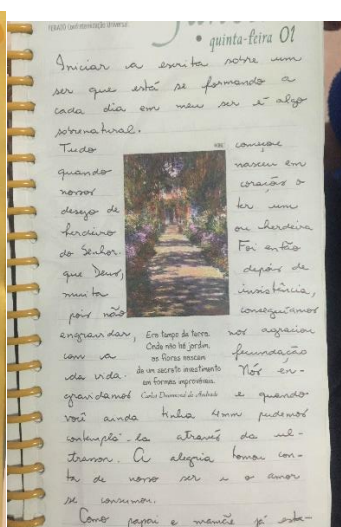 FERIADO Confraternização Universal
• quinta-feira 01
Iniciar a escrita sobre um
ser que está se formando a
cada dia em meu ser é algo
sobrenatural.
Tudo começou
quando nasceu em
nossos coração o
desejo de ter um
herdeiro ou herdeira
do Senhor. Foi então
que Deus, depois de
muita insistência,
pois não conseguíamos
engravidar, nos agraciou
com a fecundação
da vida. Nós en-
gravidamos e quando
você ainda tinha 4mm pudemos
contemplá-la através da ul-
trasson. A alegria tomou con-
ta de nosso ser e o amor
se consumou.
Como papai e mamãe já esta-
Era tempo de terra.
Onde não há jardim,
as flores nascem
de um secreto investimento
em formas improváveis.
Carlos Drummond de Andrade